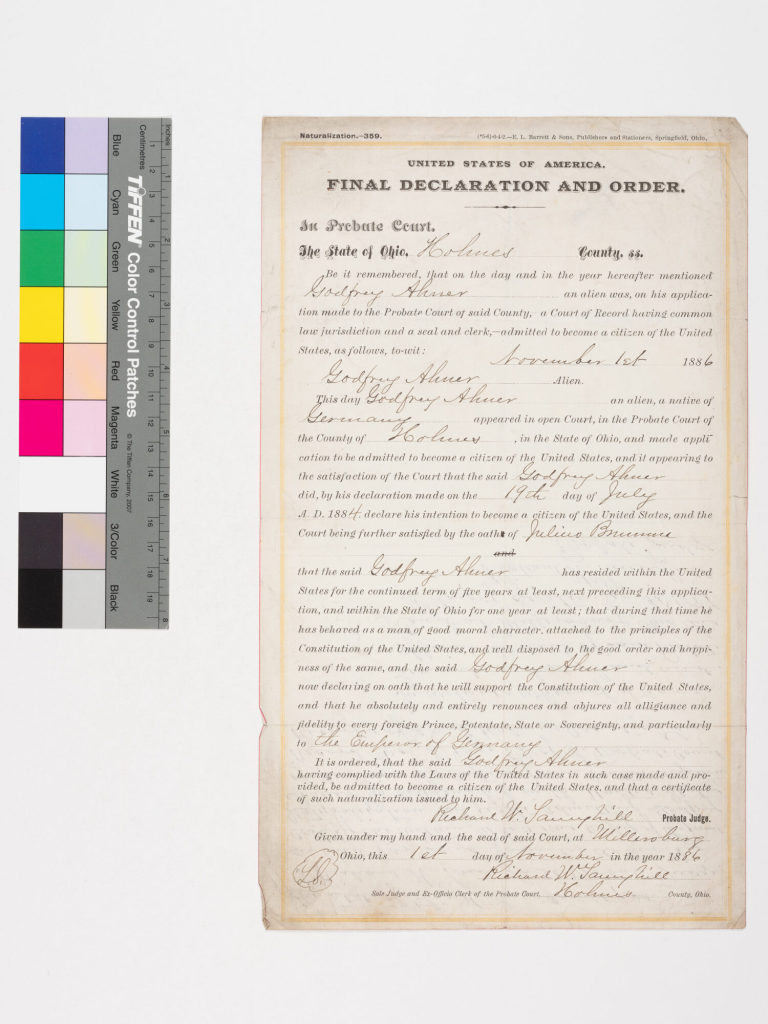 Inches
Centimetres
TIFFEN Color Control Patches
© The Tiffen Company, 2007
Blue
Cyan
Green
Yellow
Red
Magenta
White
3/Color
Black
1 2 3 4 5 6 7 8 9 10 11 12 13 14 15 16 17 18 19
1 2 3 4 5 6 7 8
Naturalization.—359.
E. L. Barrett & Sons, Publishers and Stationers, Springfield, Ohio.
UNITED STATES OF AMERICA.
FINAL DECLARATION AND ORDER.
In Probate Court.
The State of Ohio, Holmes County, ss.
Be it remembered, that on the day and in the year hereafter mentioned
Godfrey Ahner an alien was, on his applica-
tion made to the Probate Court of said County,—a Court of Record having common
law jurisdiction and a seal and clerk,—admitted to become a citizen of the United
States, as follows, to-wit:
November 1st 1886
Godfrey Ahner Alien.
This day Godfrey Ahner an alien, a native of
Germany appeared in open Court, in the Probate Court of
the County of Holmes, in the State of Ohio, and made appli-
cation to be admitted to become a citizen of the United States, and it appearing to
the satisfaction of the Court that the said Godfrey Ahner
did, by his declaration made on the 19th day of July
A. D. 1884 declare his intention to become a citizen of the United States, and the
Court being further satisfied by the oath of Julius
and
that the said Godfrey Ahner has resided within the United
States for the continued term of five years at least, next preceeding this applica-
tion, and within the State of Ohio for one year at least; that during that time he
has behaved as a man of good moral character, attached to the principles of the
Constitution of the United States, and well disposed to the good order and happi-
ness of the same, and the said Godfrey Ahner
now declaring on oath that he will support the Constitution of the United States,
and that he absolutely and entirely renounces and abjures all alligiance and
fidelity to every foreign Prince, Potentate, State or Sovereignty, and particularly
to the Emperor of Germany
It is ordered, that the said Godfrey Ahner
having complied with the Laws of the United States in such case made and pro-
vided, be admitted to become a citizen of the United States, and that a certificate
of such naturalization issued to him.
Richard W. Taneyhill Probate Judge.
Given under my hand and the seal of said Court, at Millersburg
Ohio, this 1st day of November in the year 1886
Richard W. Taneyhill
Sole Judge and Ex-Officio Clerk of the Probate Court. Holmes County, Ohio.